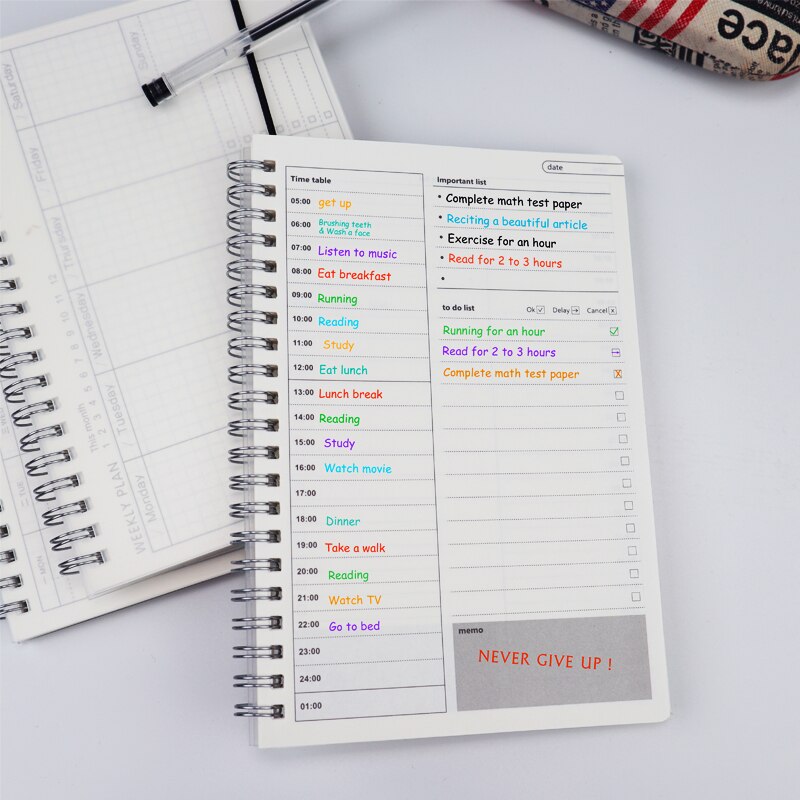 date
Time table
05:00 get up
06:00 Brushing teeth
& Wash a face
07:00 Listen to music
08:00 Eat breakfast
09:00 Running
10:00 Reading
11:00 Study
12:00 Eat lunch
13:00 Lunch break
14:00 Reading
15:00 Study
16:00 Watch movie
17:00
18:00 Dinner
19:00 Take a walk
20:00 Reading
21:00 Watch TV
22:00 Go to bed
23:00
24:00
01:00
Important list
• Complete math test paper
• Reciting a beautiful article
• Exercise for an hour
• Read for 2 to 3 hours
•
to do list Ok Delay Cancel
Running for an hour
Read for 2 to 3 hours
Complete math test paper
memo
NEVER GIVE UP !
WEEKLY PLAN
This month 1 2 3 4 5 6 7 8 9 10 11 12
/ Monday
/ Tuesday
Wednesday
/ Thursday
Friday
/ Saturday
Sunday
ace